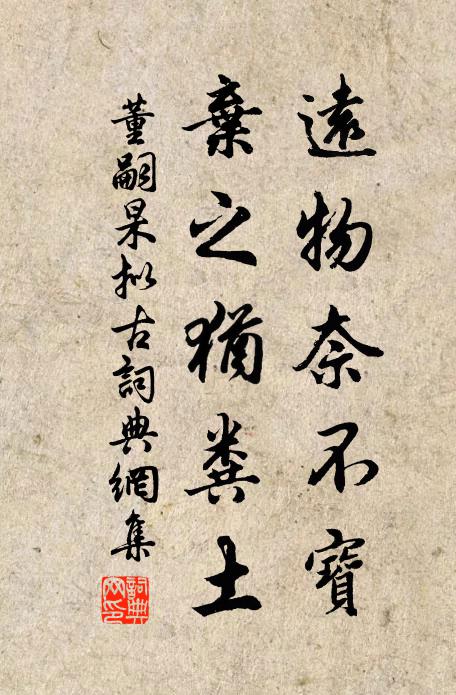 遠物奈不寶
棄之猶糞土
董嗣杲拟古詞典網集
詞典網印